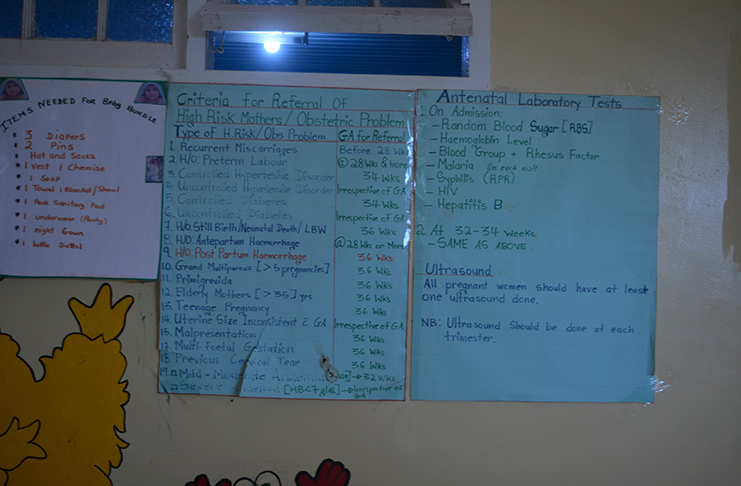 ITEMS NEEDED FOR Baby BUNDLE
3 Diapers
2 Pins
Hat and Socks
1 Vest 1 Chemise
1 Soap
1 Towel 1 Blanket/Shawl
1 Pack Sanitary Pad
1 underwear (Panty)
1 night Gown
1 bottle Dettol
Criteria For Referral Of
High Risk Mothers/Obstetric Problem
Type of H.Risk/Obs Problem GA for Referral
1. Recurrent Miscarriages Before 28 Wks
2. H/O: Preterm Labour @ 28 Wks & more
3. Controlled Hypertensive Disorder 34 Wks
4. Uncontrolled Hypertensive Disorder Irrespective of GA
5. Controlled Diabetes 34 Wks
6. Uncontrolled Diabetes Irrespective of GA
7. H/O: Still Birth/Neonatal Death/LBW 36 Wks
8. H/O: Antepartum Haemorrhage @ 28 Wks or More
9. H/O: Post Partum Haemorrhage 36 Wks
10. Grand Multiparous [>5 pregnancies] 36 Wks
11. Primigravida 36 Wks
12. Elderly Mothers [>35] yrs 36 Wks
13. Teenage Pregnancy 36 Wks
14. Uterine Size Inconsistent c̄ GA Irrespective of GA
15. Malpresentation 36 Wks
17. Multi-foetal Gestation 36 Wks
18. Previous Cervical Tear 36 Wks
19. Mild - Moderate → 32 Wks
[HB<7g/dL] → Irrespective of GA
Antenatal Laboratory Tests
1. On Admission:
- Random Blood Sugar [RBS]
- Haemoglobin Level
- Blood Group + Rhesus Factor
- Malaria On each visit
- Syphilis (RPR)
- HIV
- Hepatitis B
2. At 32-34 weeks
- SAME AS ABOVE
Ultrasound
All pregnant women should have at least
one ultrasound done.
NB: Ultrasound should be done at each
trimester.